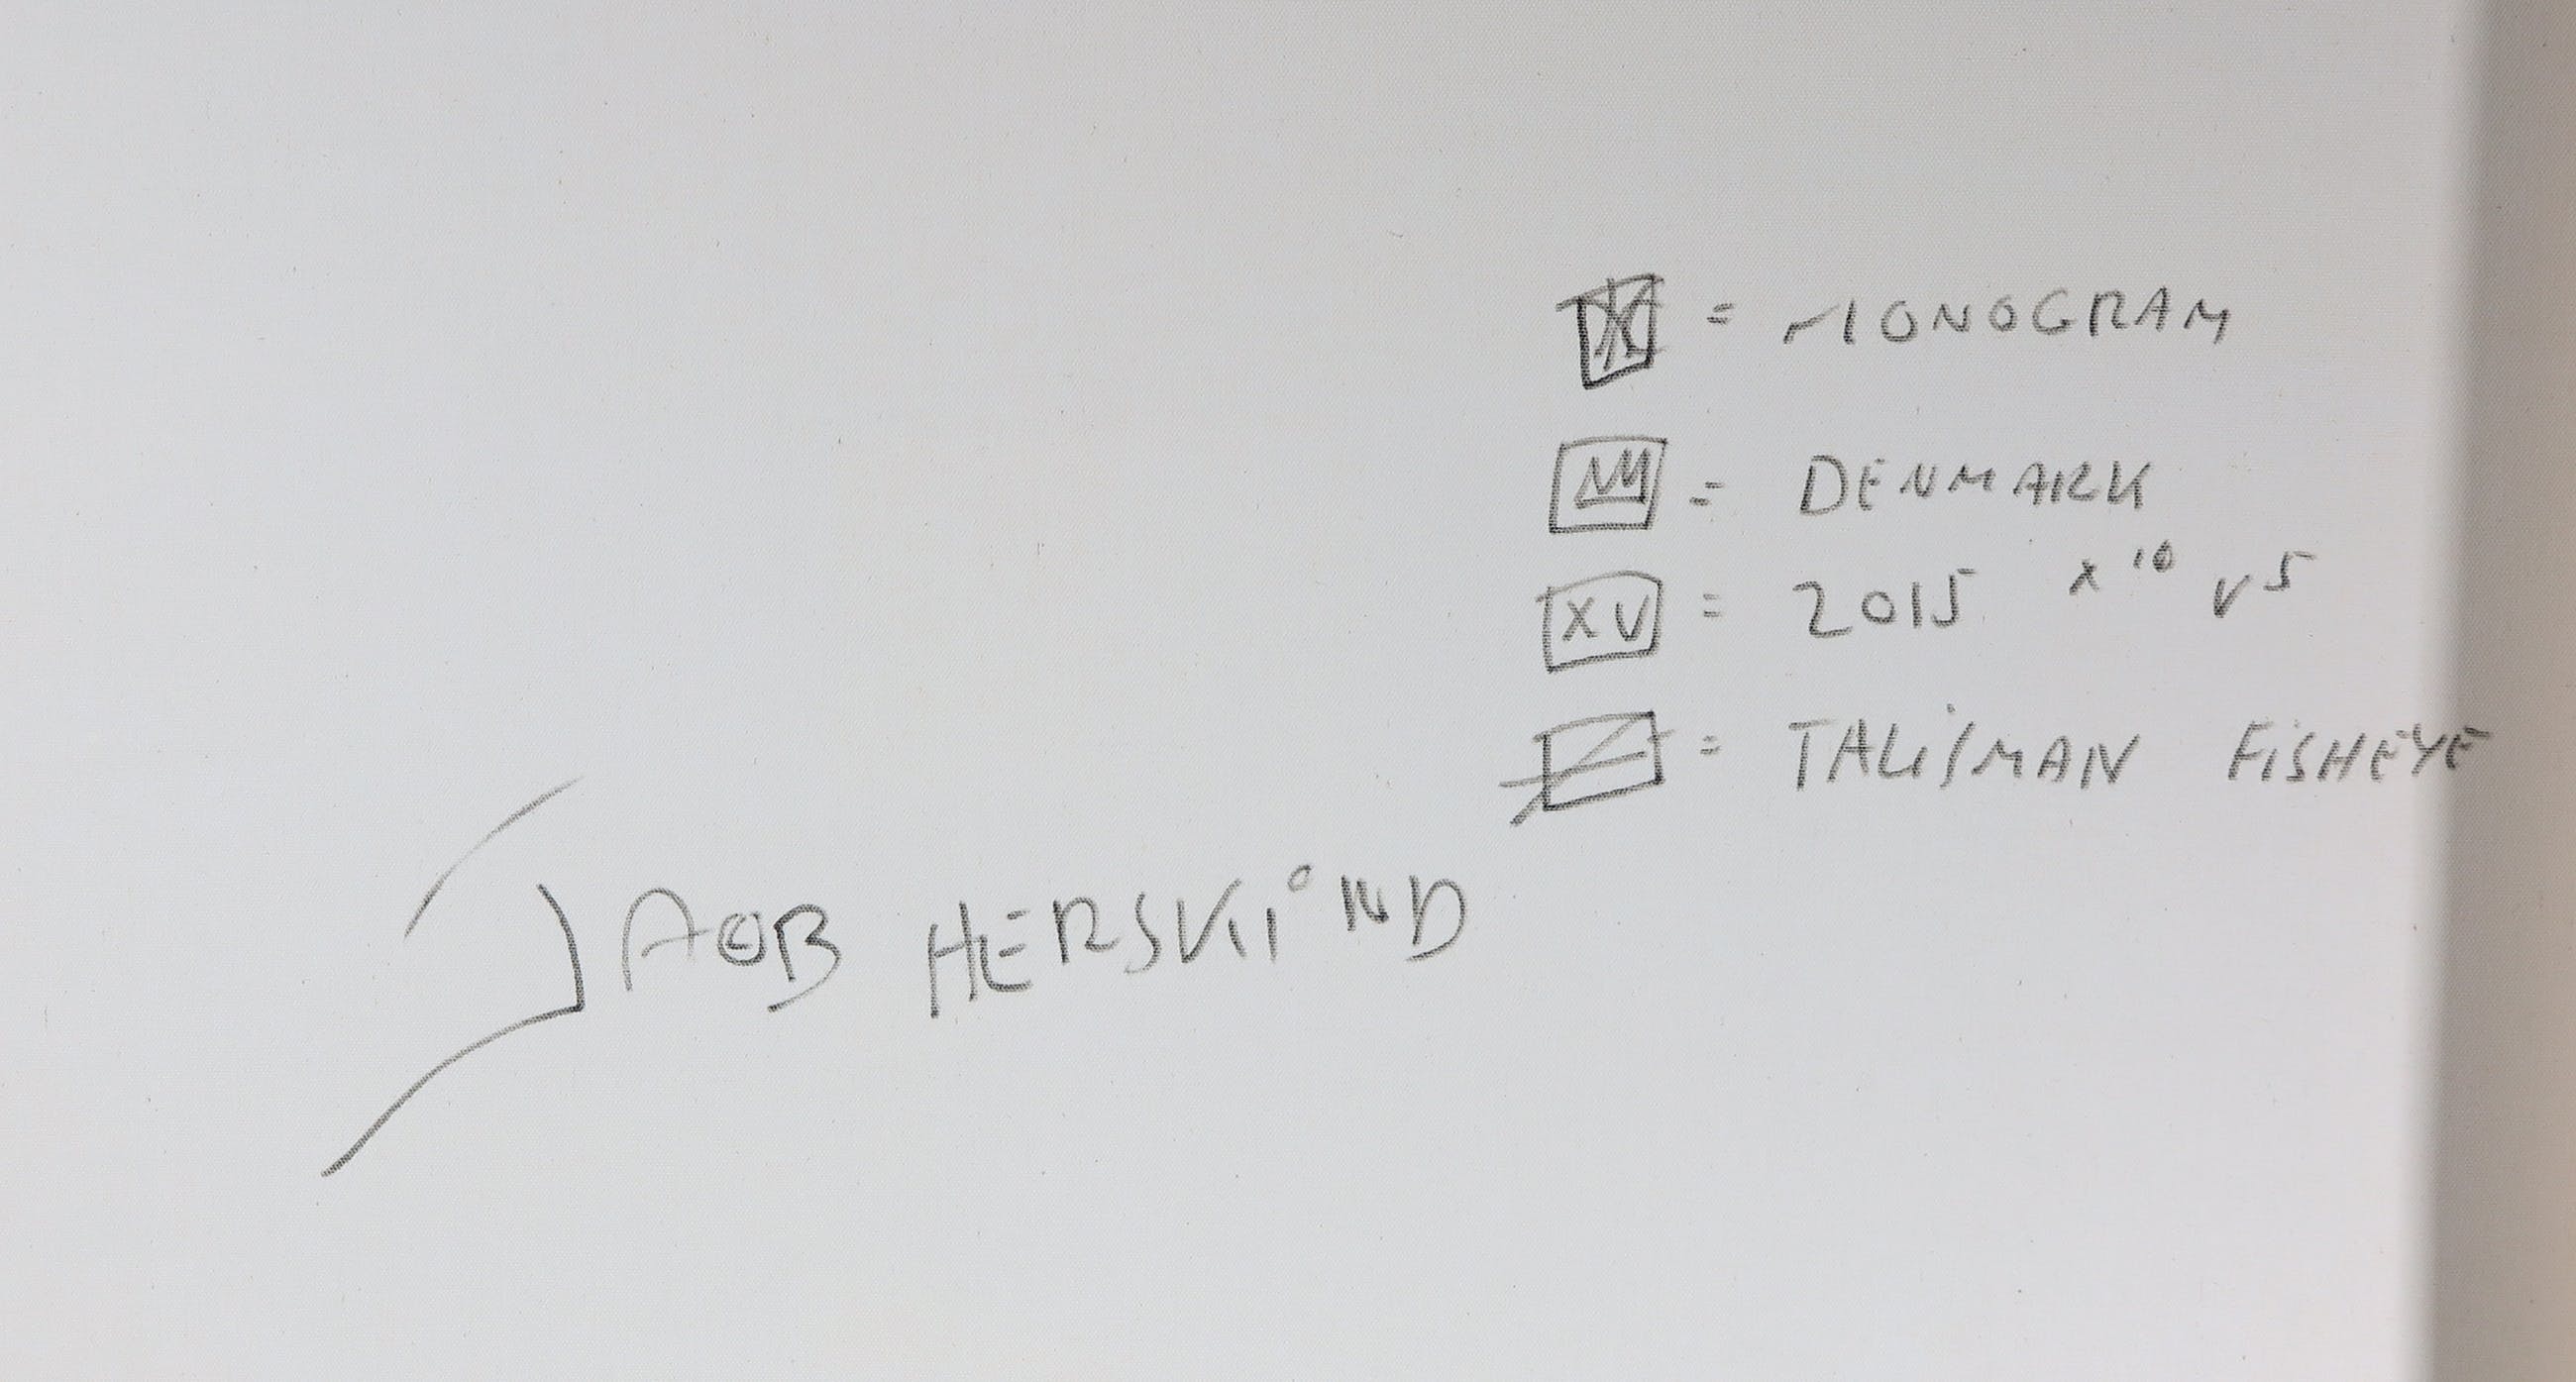 = MONOGRAM
= DENMARK
XV = 2015 X 10 V 5
= TALiSMAN FiSHEYE
JACOB HERSKIND